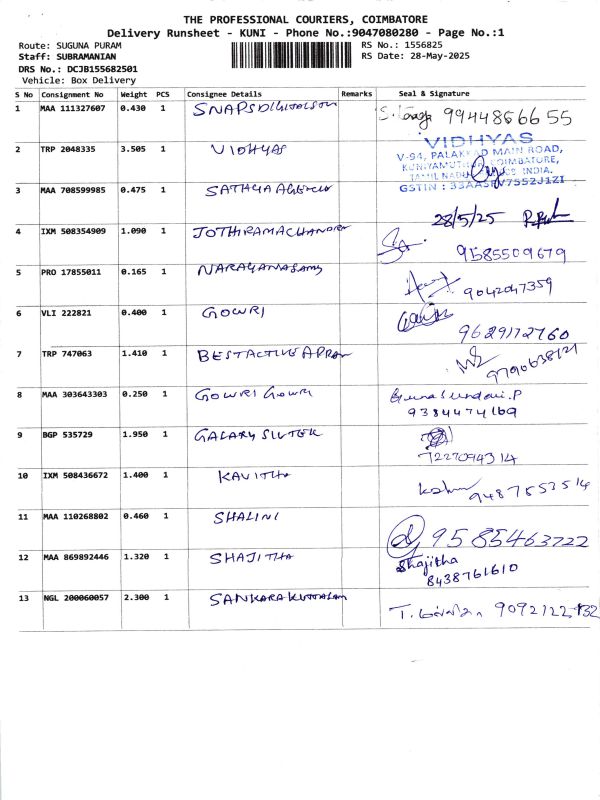 THE PROFESSIONAL COURIERS, COIMBATORE
Delivery Runsheet - KUNI - Phone No.:9047080280 - Page No.:1
Route: SUGUNA PURAM
RS No.: 1556825
Staff: SUBRAMANIAN
RS Date: 28-May-2025
DRS No.: DCJB155682501
Vehicle: Box Delivery
S No Consignment No Weight PCS Consignee Details Remarks Seal & Signature
1 MAA 111327607 0.430 1 SNAPSDIGITALSON 9944866655
2 TRP 2048335 3.505 1 VIDHYAS
VIDHYAS
V-94, PALAKKAD MAIN ROAD,
KUNIYAMUTHUR, COIMBATORE,
TAMIL NADU INDIA.
GSTIN : 33AASFV7552J1ZI
3 MAA 708599985 0.475 1 SATHYA AGENCIES
28/5/25
4 IXM 508354909 1.090 1 JOTHIRAMACHANDRA 9585509679
5 PRO 17855011 0.165 1 NARAYANASAMY 9042047359
6 VLI 222821 0.400 1 GOWRI 9629172760
7 TRP 747063 1.410 1 BESTACTIVE APPAR 9790638121
8 MAA 303643303 0.250 1 GOWRI GOWRI Gunasundari.P
9384474169
9 BGP 535729 1.950 1 GALAXY SLVTEK
7227094314
10 IXM 508436672 1.400 1 KAVITHA 9487553514
11 MAA 110268802 0.460 1 SHALINI 9585463722
12 MAA 869892446 1.320 1 SHAJITHA Shajitha
8438761610
13 NGL 200060057 2.300 1 SANKARAKUTTALAM 9092122132